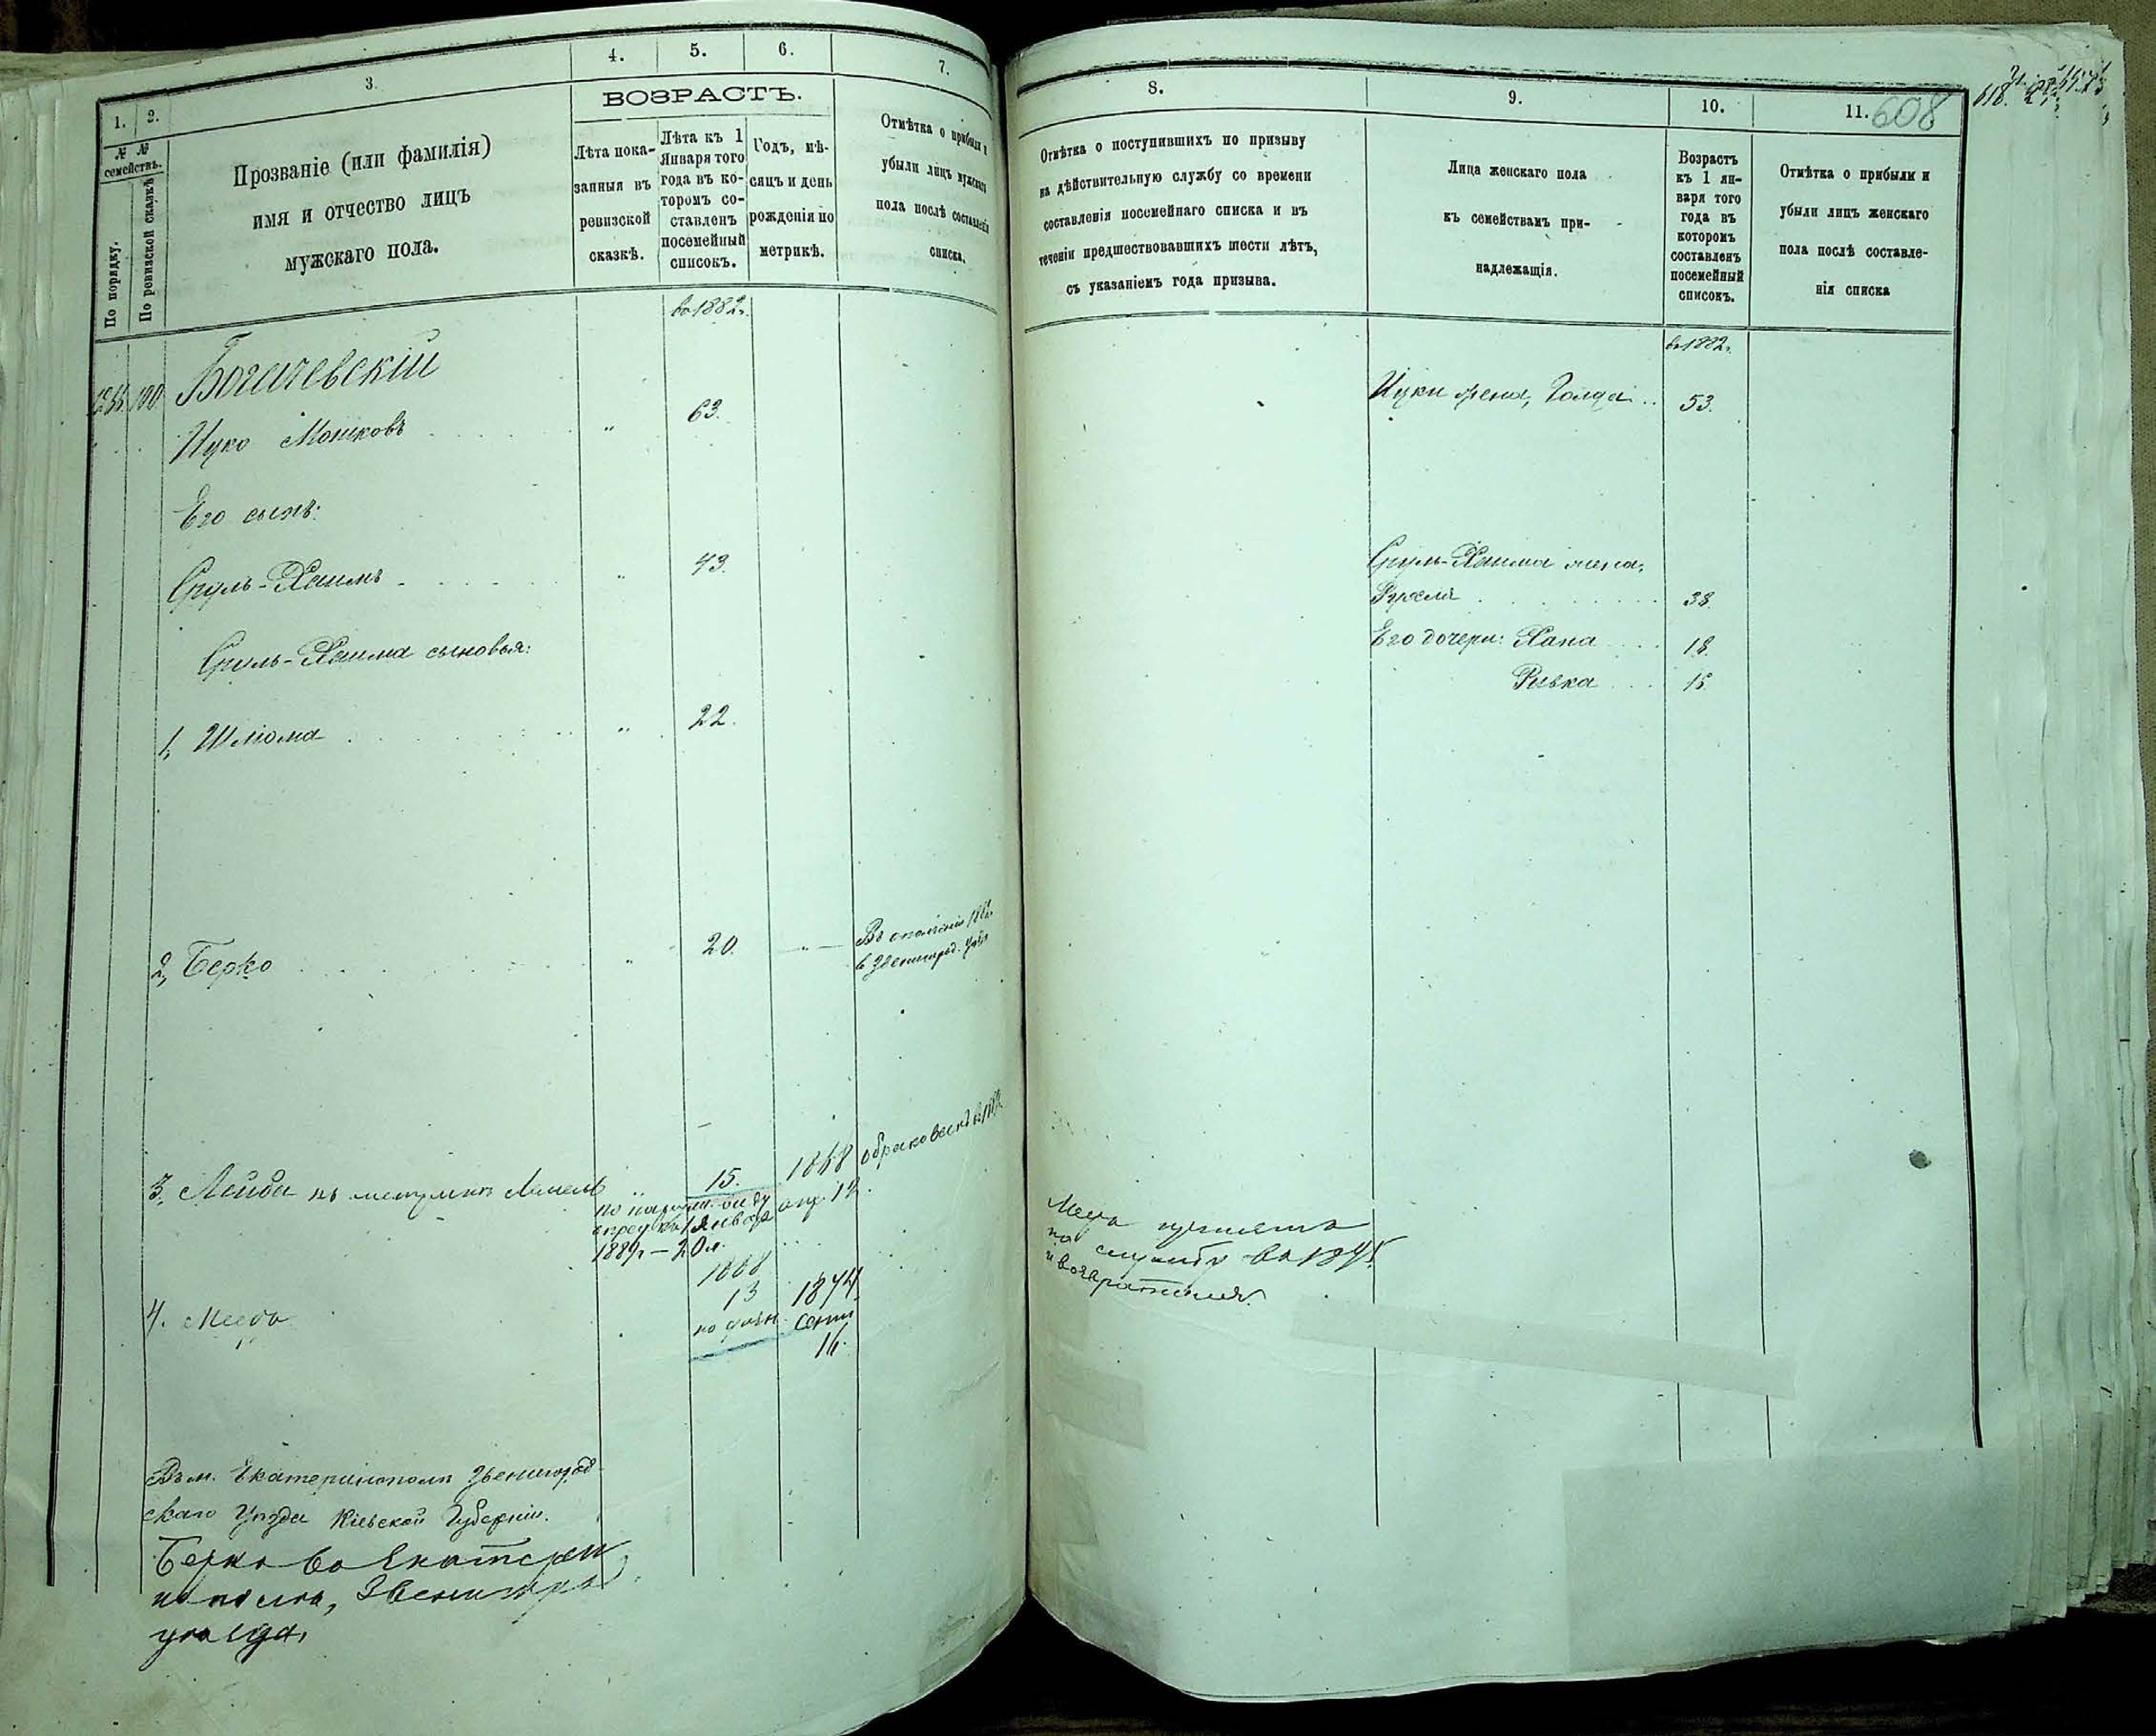 1.
2.
3.
4.
5.
6.
7.
№ №
семействъ.
По порядку.
По ревизской сказкѣ
Прозваніе (или фамилія)
имя и отчество лицъ
мужскаго пола.
ВОЗРАСТЪ.
Лѣта пока-
занныя въ
ревизской
сказкѣ.
Лѣта къ 1
Января того
года въ ко-
торомъ со-
ставленъ
посемейный
списокъ.
Годъ, мѣ-
сяцъ и день
рожденія по
метрикѣ.
Отмѣтка о прибыли и
убыли лицъ мужскаго
пола послѣ составленія
списка.
въ 1882г.
100
Богачевскій
Ицко Мошковъ 63.
Его сынъ:
Сруль-Хаимъ 43.
Сруль-Хаима сыновья:
1, Шліома 22.
2, Берко 20. Въ ополченіе
в Звенигород.
3. Лейба по метрикѣ 15. 1868
по наружн. виду апр. 12.
къ 1 января
1889г. — 20 л.
1868
4. 13 1874
сент.
16.
Въ м. Екатеринополь Звенигород-
скаго Уѣзда Кіевской Губерніи.
Берко во Екатери
нополь, Звенигород
уѣзда,
8.
9.
10.
11. 608
Отмѣтка о поступившихъ по призыву
на дѣйствительную службу со времени
составленія посемейнаго списка и въ
теченіи предшествовавшихъ шести лѣтъ,
съ указаніемъ года призыва.
Лица женскаго пола
къ семействамъ при-
надлежащія.
Возрастъ
къ 1 ян-
варя того
года въ
которомъ
составленъ
посемейный
списокъ.
Отмѣтка о прибыли и
убыли лицъ женскаго
пола послѣ составле-
нія списка
въ 1882г.
Ицки жена, Голда 53.
Сруль-Хаима жена,
38.
Его дочери: Хана 18.
Ривка 15.
принятъ
на службу въ
и возвратился.